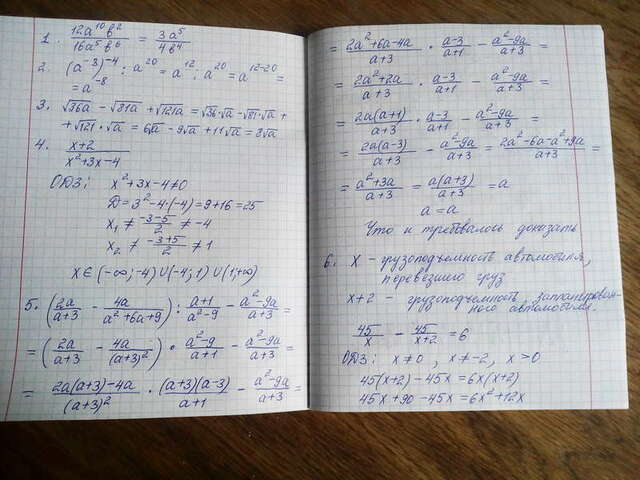 1. 12a^10 b^2 / 16a^5 b^6 = 3a^5 / 4b^4
2. (a^-3)^-4 : a^20 = a^12 : a^20 = a^12-20 =
= a^-8
3. √36a - √81a + √121a = √36·√a - √81·√a +
+ √121·√a = 6√a - 9√a + 11√a = 8√a
4. x+2 / x^2+3x-4
ОДЗ: x^2+3x-4≠0
D=3^2-4·(-4)=9+16=25
x1 ≠ -3-5 / 2 ≠ -4
x2 ≠ -3+5 / 2 ≠ 1
x∈(-∞;-4)∪(-4;1)∪(1;+∞)
5. (2a / a+3 - 4a / a^2+6a+9) : a+1 / a^2-9 - a^2-9a / a+3 =
= (2a / a+3 - 4a / (a+3)^2) · a^2-9 / a+1 - a^2-9a / a+3 =
= 2a(a+3)-4a / (a+3)^2 · (a+3)(a-3) / a+1 - a^2-9a / a+3 =
= 2a^2+6a-4a / a+3 · a-3 / a+1 - a^2-9a / a+3 =
= 2a^2+2a / a+3 · a-3 / a+1 - a^2-9a / a+3 =
= 2a(a+1) / a+3 · a-3 / a+1 - a^2-9a / a+3 =
= 2a(a-3) / a+3 - a^2-9a / a+3 = 2a^2-6a-a^2+9a / a+3 =
= a^2+3a / a+3 = a(a+3) / a+3 = a
a=a
Что и требовалось доказать
6. x - грузоподъемность автомобиля,
перевёзшего груз
x+2 - грузоподъемность запланирован-
ного автомобиля.
45 / x - 45 / x+2 = 6
ОДЗ: x≠0, x≠-2, x>0
45(x+2) - 45x = 6x(x+2)
45x+90-45x = 6x^2+12x